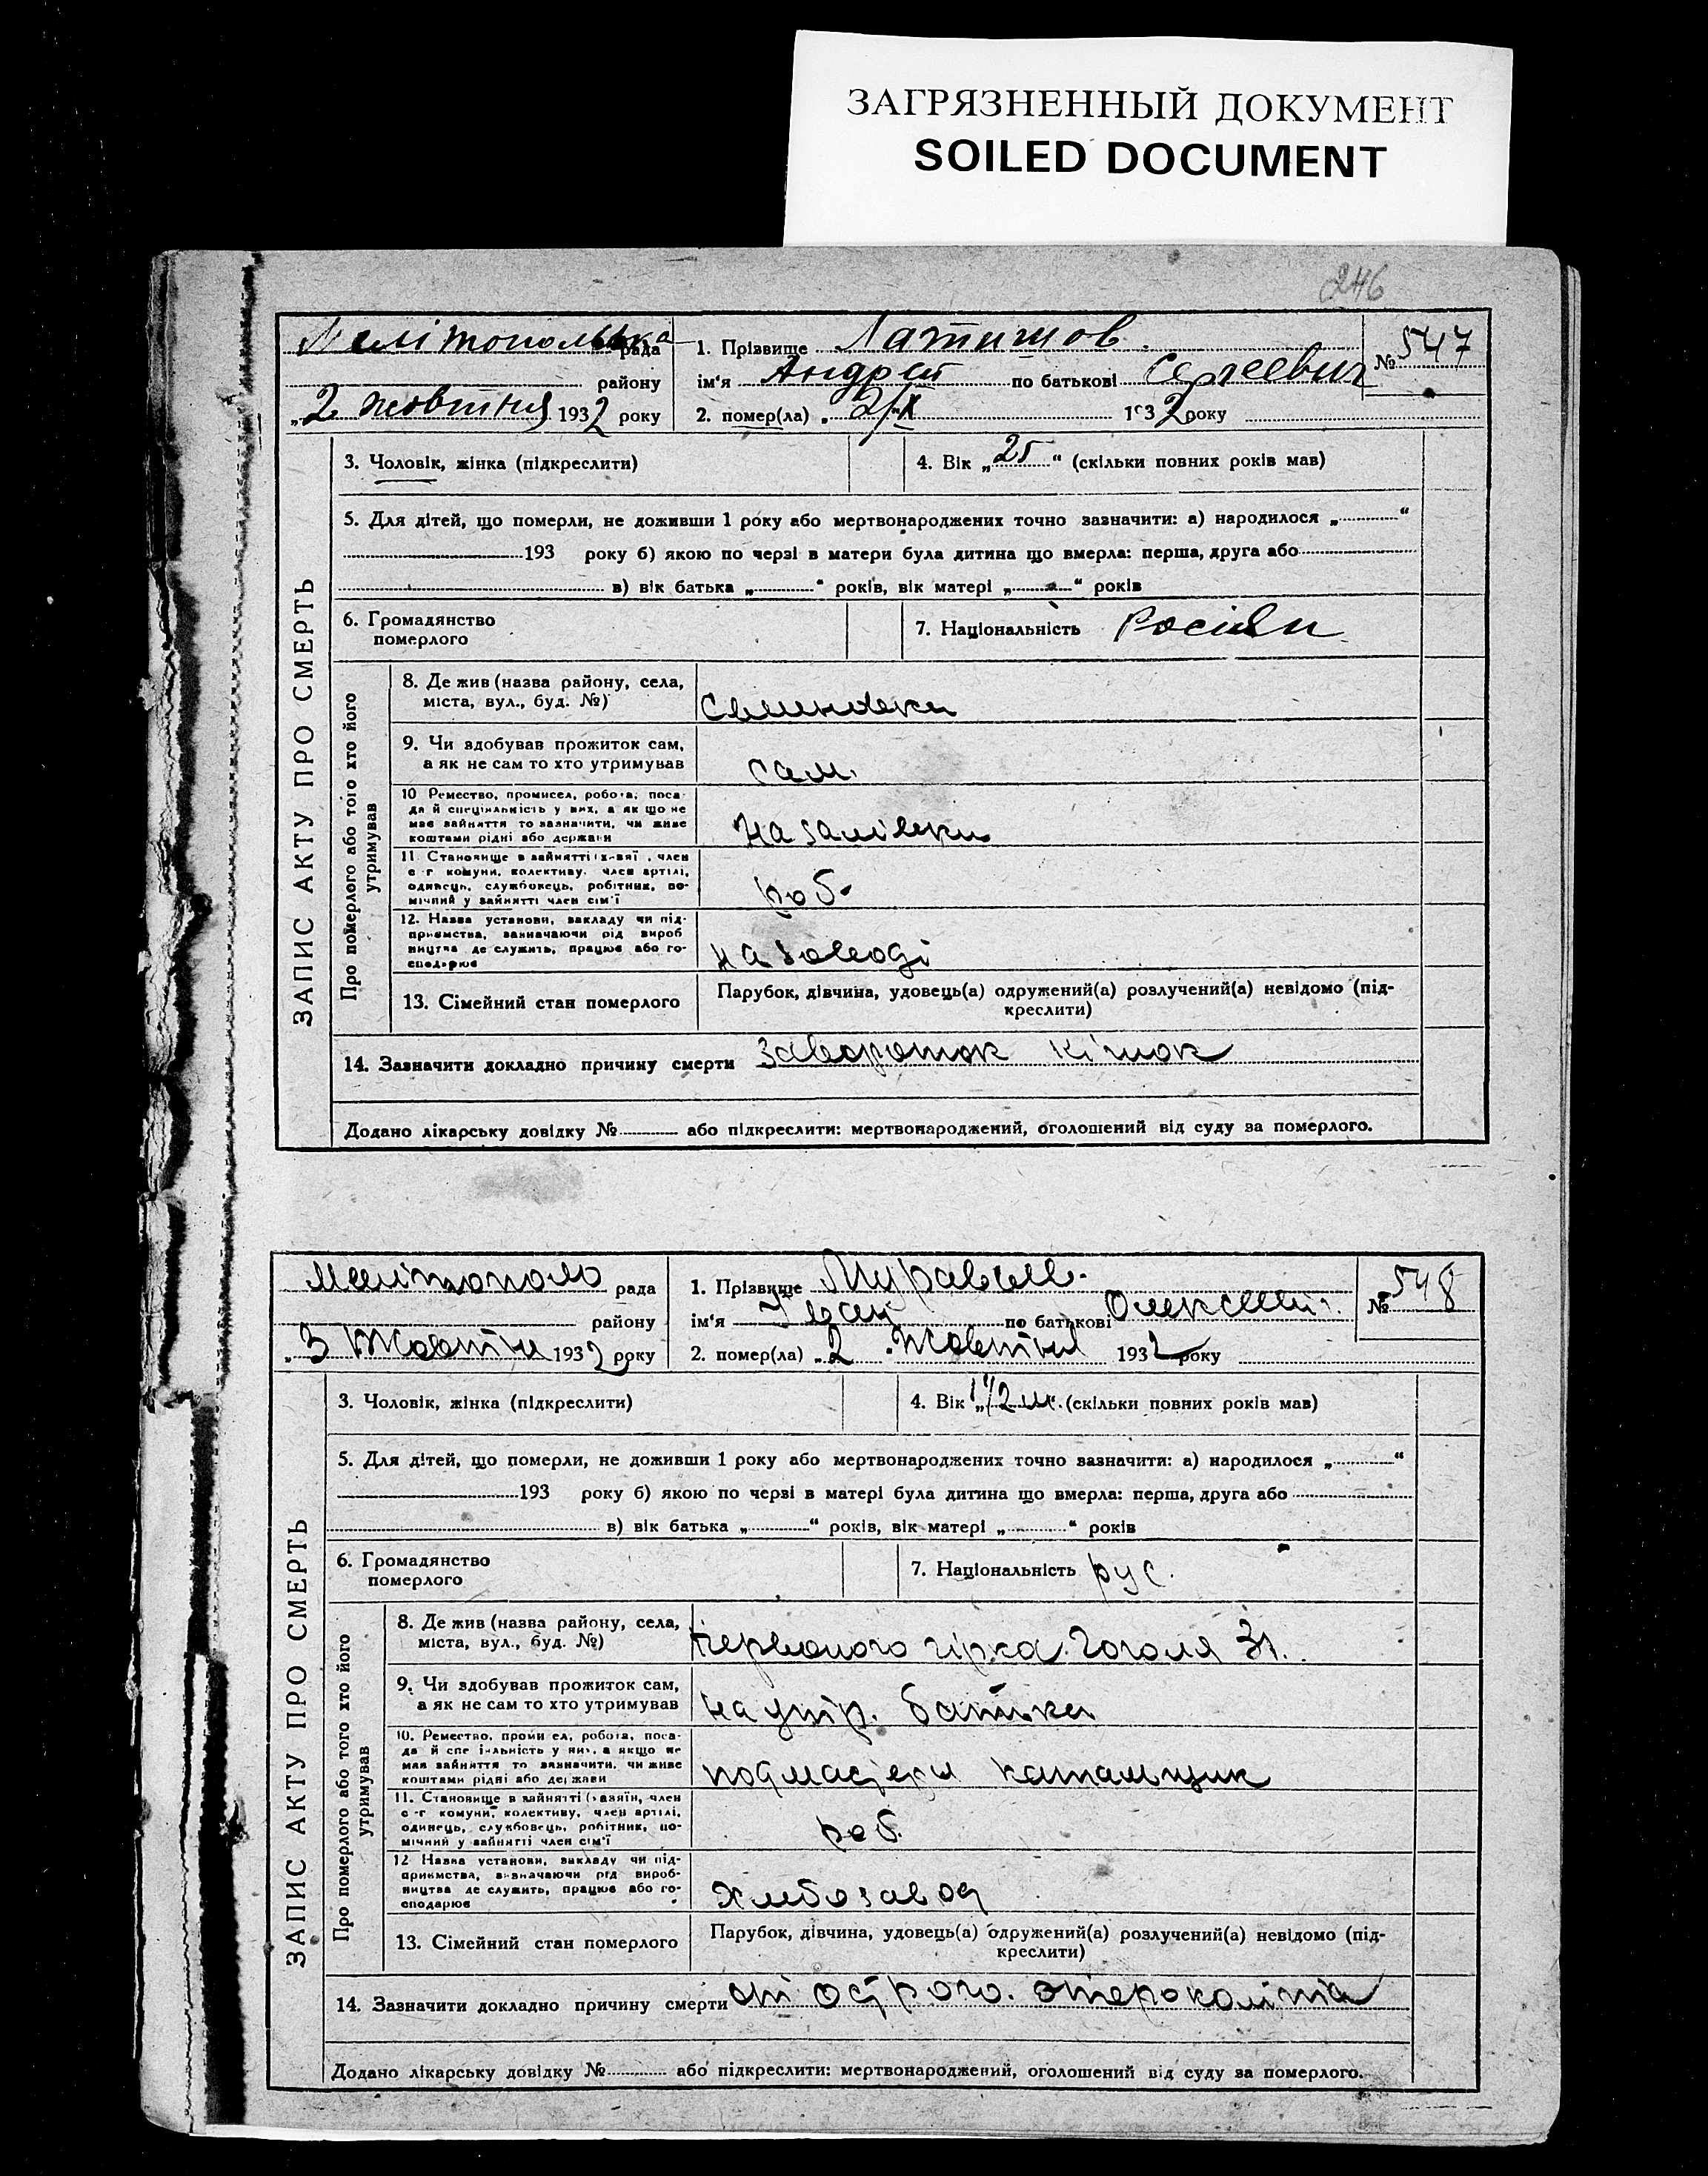 ЗАГРЯЗНЕННЫЙ ДОКУМЕНТ
SOILED DOCUMENT
246
Мелітопольська рада
району
„2 жовтня 1932 року
1. Прізвище Латишов
ім'я Андрей по батькові Сергеевич
2. помер(ла) „ 2/X 1932 року
№ 547
ЗАПИС АКТУ ПРО СМЕРТЬ
3. Чоловік, жінка (підкреслити)
4. Вік „25“ (скільки повних років мав)
5. Для дітей, що померли, не доживши 1 року або мертвонароджених точно зазначити: а) народилося „ “
193 року б) якою по черзі в матери була дитина що вмерла: перша, друга або
в) вік батька „ “ років, вік матері „ “ років
6. Громадянство
померлого
7. Національність
Про померлого або того хто його
утримував
8. Де жив (назва району, села,
міста, вул., буд. №)
9. Чи здобував прожиток сам,
а як не сам то хто утримував
сам.
10 Ремество, промисел, робота, поса-
да й спеціяльність у них, а як що не
має зайняття то зазначити, чи живе
коштами рідні або держави
11. Становище в зайнятті член
с-г комуни, колективу, член артілі,
одинець, службовець, робітник, по-
мічний у зайнятті член сім'ї
роб.
12. Назва установи, закладу чи під-
приємства, зазначаючи рід вироб
ництва де служить, працює або го-
сподарює
на заводі
13. Сімейний стан померлого
Парубок, дівчина, удовець(а) одружений(а) розлучений(а) невідомо (під-
креслити)
14. Зазначити докладно причину смерти заворот кішок
Додано лікарську довідку № або підкреслити: мертвонароджений, оголошений від суду за померлого.
Мелітополь рада
району
„3 Жовтня 1932 року
1. Прізвище
ім'я Іван по батькові
2. помер(ла) „2 Жовтня 1932 року
№ 548
ЗАПИС АКТУ ПРО СМЕРТЬ
3. Чоловік, жінка (підкреслити)
4. Вік „ (скільки повних років мав)
5. Для дітей, що померли, не доживши 1 року або мертвонароджених точно зазначити: а) народилося „ “
193 року б) якою по черзі в матері була дитина що вмерла: перша, друга або
в) вік батька „ “ років, вік матері „ “ років
6. Громадянство
померлого
7. Національність рус.
Про померлого або того хто його
утримував
8. Де жив (назва району, села,
міста, вул., буд. №)
гірка. Гоголя 31.
9. Чи здобував прожиток сам,
а як не сам то хто утримував
на утр. батька
10. Ремество, промисел, робота, поса-
да й спеціяльність у них, а якщо не
має зайняття то зазначити, чи живе
коштами рідні або держави
11. Становище в зайнятті (хазяїн, член
с-г комуни, колективу, член артілі,
одинець, службовець, робітник, по-
мічний у зайнятті член сім'ї
роб.
12 Назва установи, закладу чи під-
приємства, зазначаючи рід вироб-
ництва де служить, працює або го-
сподарює
Хлебозавод
13. Сімейний стан померлого
Парубок, дівчина, удовець(а) одружений(а) розлучений(а) невідомо (під-
креслити)
14. Зазначити докладно причину смерти от острого. энтероколіта
Додано лікарську довідку № або підкреслити: мертвонароджений, оголошений від суду за померлого.